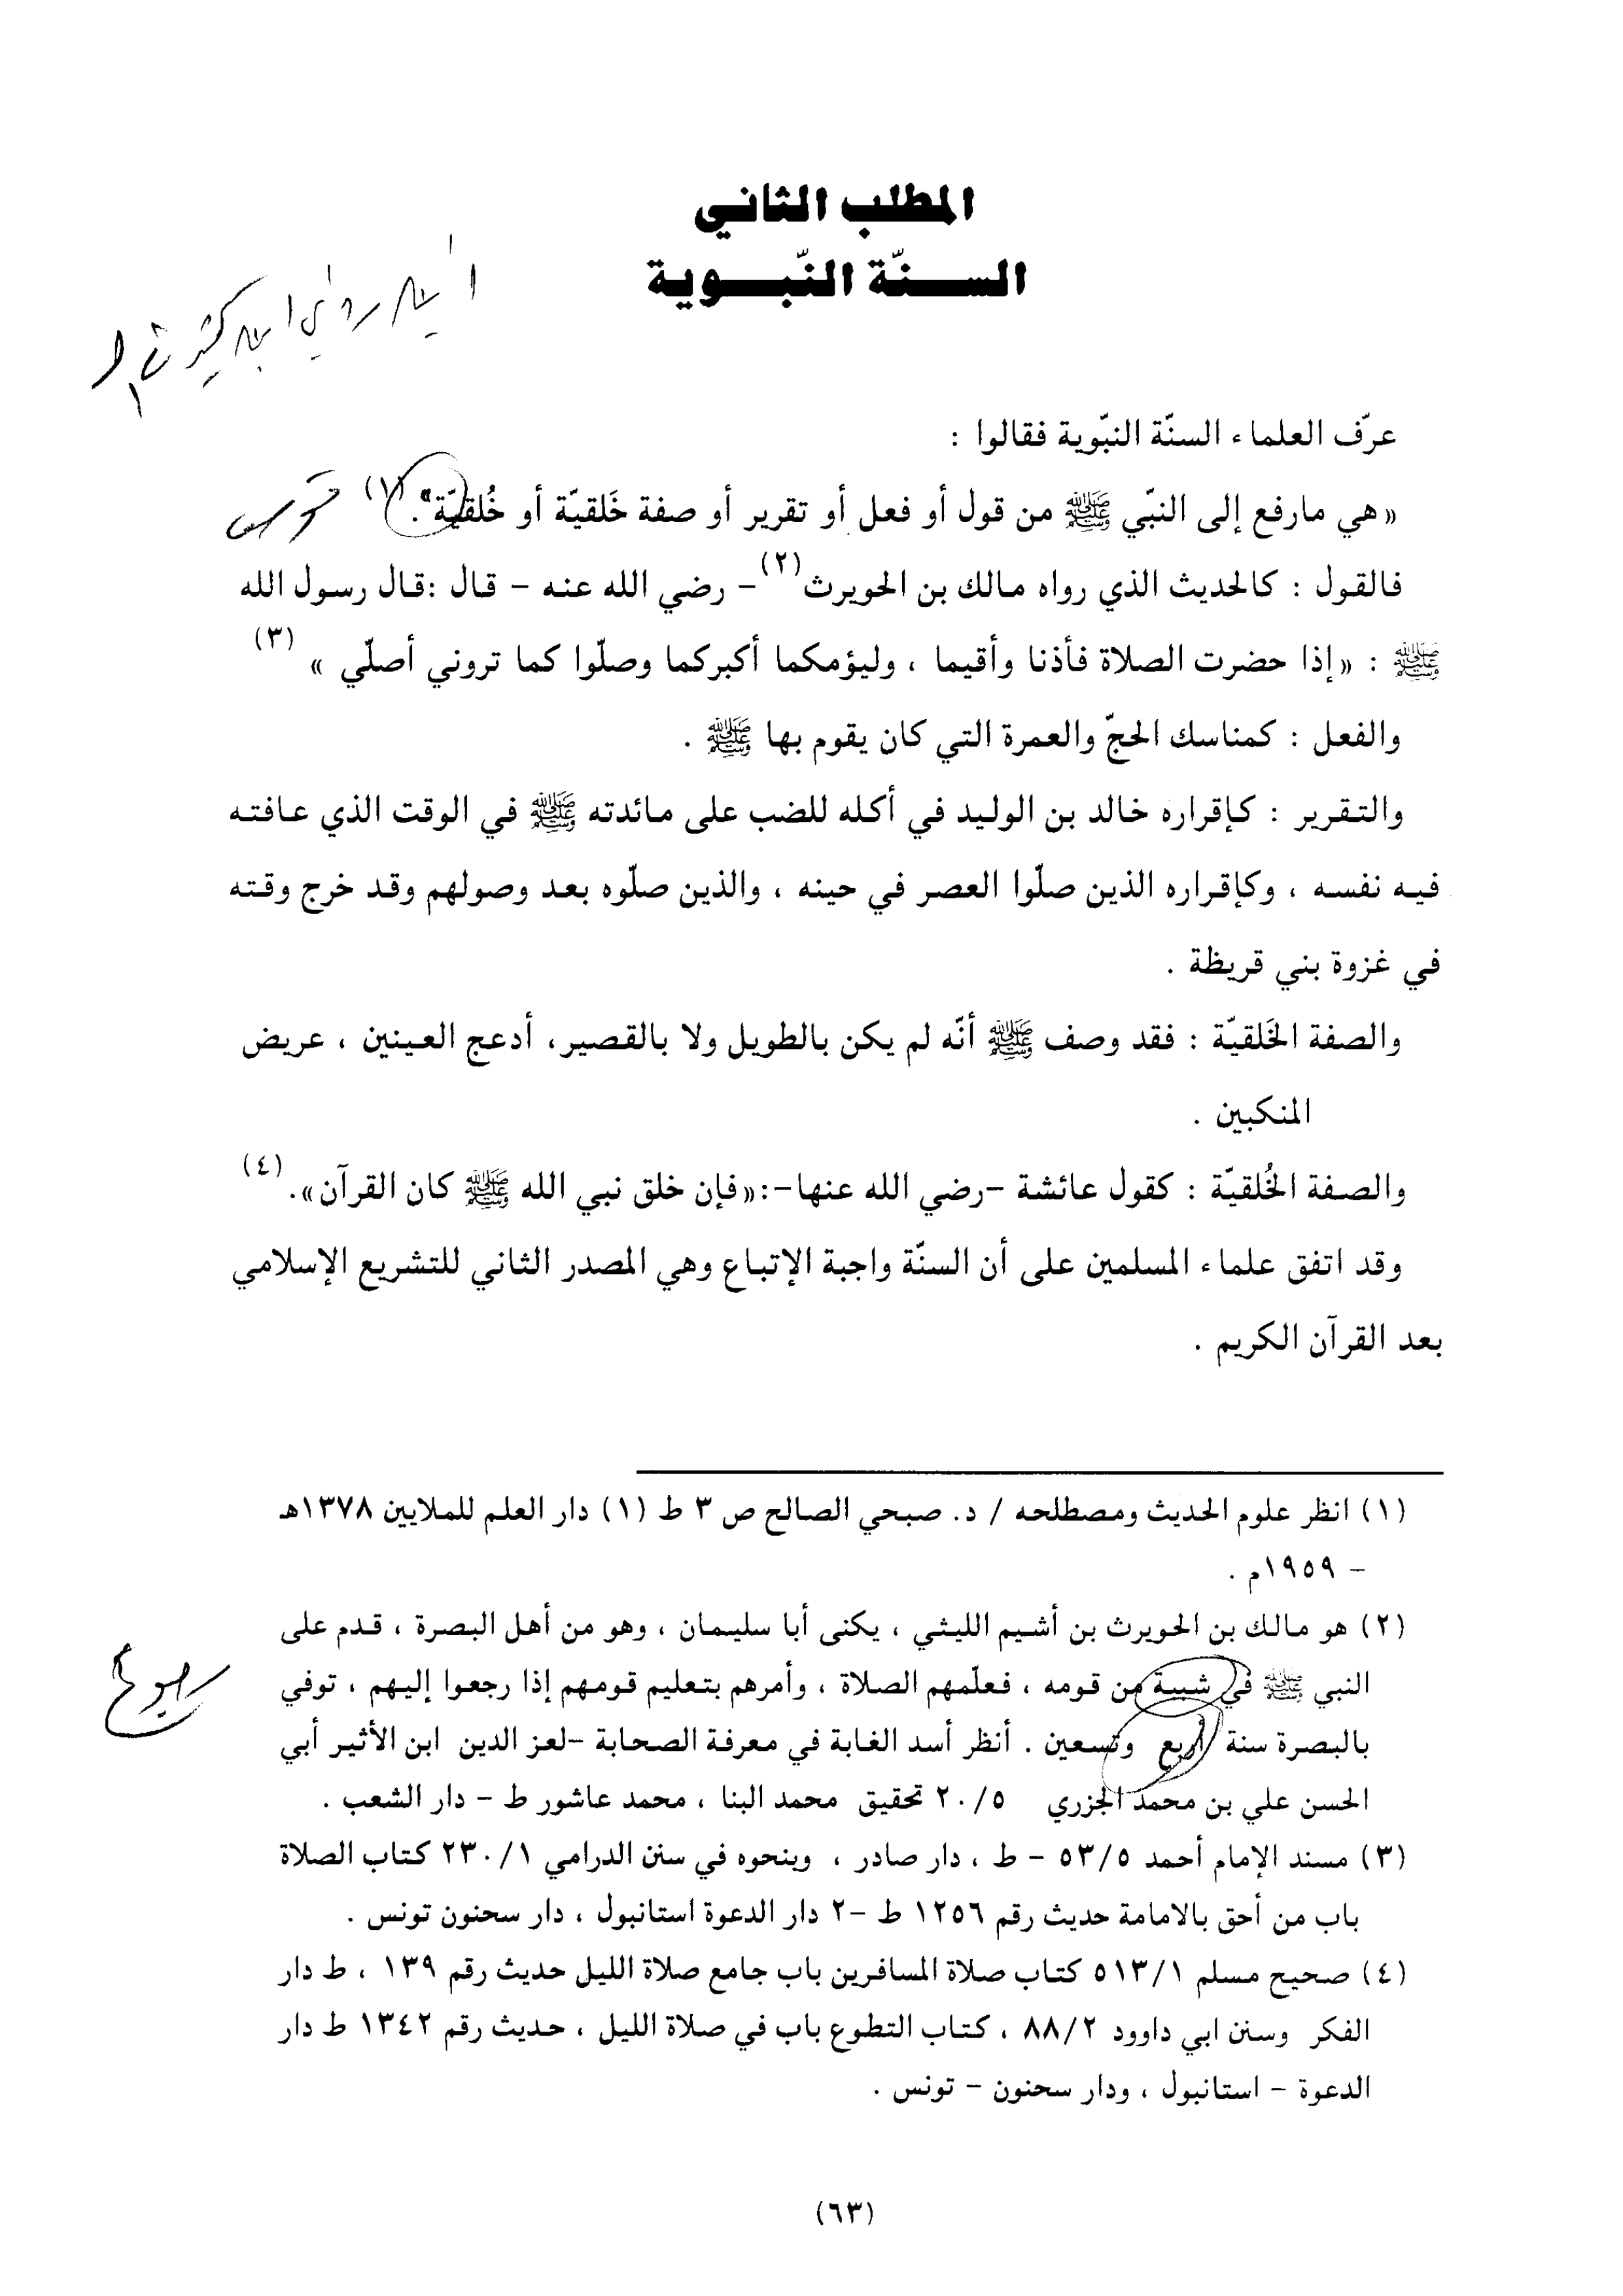 المطلب الثاني
السنّة النّبوية
عرّف العلماء السنّة النبّوية فقالوا :
«هي مارفع إلى النبّي ﷺ من قول أو فعل أو تقرير أو صفة خَلقيّة أو خُلقيّة». (١)
فالقول : كالحديث الذي رواه مالك بن الحويرث(٢) – رضي الله عنه – قال :قال رسول الله
ﷺ : «إذا حضرت الصلاة فأذنا وأقيما ، وليؤمكما أكبركما وصلّوا كما تروني أصلّي » (٣)
والفعل : كمناسك الحجّ والعمرة التي كان يقوم بها ﷺ .
والتقرير : كإقراره خالد بن الوليد في أكله للضب على مائدته ﷺ في الوقت الذي عافته
فيه نفسه ، وكإقراره الذين صلّوا العصر في حينه ، والذين صلّوه بعد وصولهم وقد خرج وقته
في غزوة بني قريظة .
والصفة الخَلقيّة : فقد وصف ﷺ أنّه لم يكن بالطويل ولا بالقصير، أدعج العينين ، عريض
المنكبين .
والصفة الخُلقيّة : كقول عائشة –رضي الله عنها–:«فإن خلق نبي الله ﷺ كان القرآن». (٤)
وقد اتفق علماء المسلمين على أن السنّة واجبة الإتباع وهي المصدر الثاني للتشريع الإسلامي
بعد القرآن الكريم .
(١) انظر علوم الحديث ومصطلحه / د. صبحي الصالح ص ٣ ط (١) دار العلم للملايين ١٣٧٨هـ
– ١٩٥٩م .
(٢) هو مالك بن الحويرث بن أشيم الليثي ، يكنى أبا سليمان ، وهو من أهل البصرة ، قدم على
النبي ﷺ في شببة من قومه ، فعلّمهم الصلاة ، وأمرهم بتعليم قومهم إذا رجعوا إليهم ، توفي
بالبصرة سنة أربع وتسعين . أنظر أسد الغابة في معرفة الصحابة –لعز الدين ابن الأثير أبي
الحسن علي بن محمد الجزري ٢٠/٥ تحقيق محمد البنا ، محمد عاشور ط – دار الشعب .
(٣) مسند الإمام أحمد ٥٣/٥ – ط ، دار صادر ، وبنحوه في سنن الدرامي ٢٣٠/١ كتاب الصلاة
باب من أحق بالامامة حديث رقم ١٢٥٦ ط –٢ دار الدعوة استانبول ، دار سحنون تونس .
(٤) صحيح مسلم ٥١٣/١ كتاب صلاة المسافرين باب جامع صلاة الليل حديث رقم ١٣٩ ، ط دار
الفكر وسنن ابي داوود ٨٨/٢ ، كتاب التطوع باب في صلاة الليل ، حديث رقم ١٣٤٢ ط دار
الدعوة – استانبول ، ودار سحنون – تونس .
(٦٣)